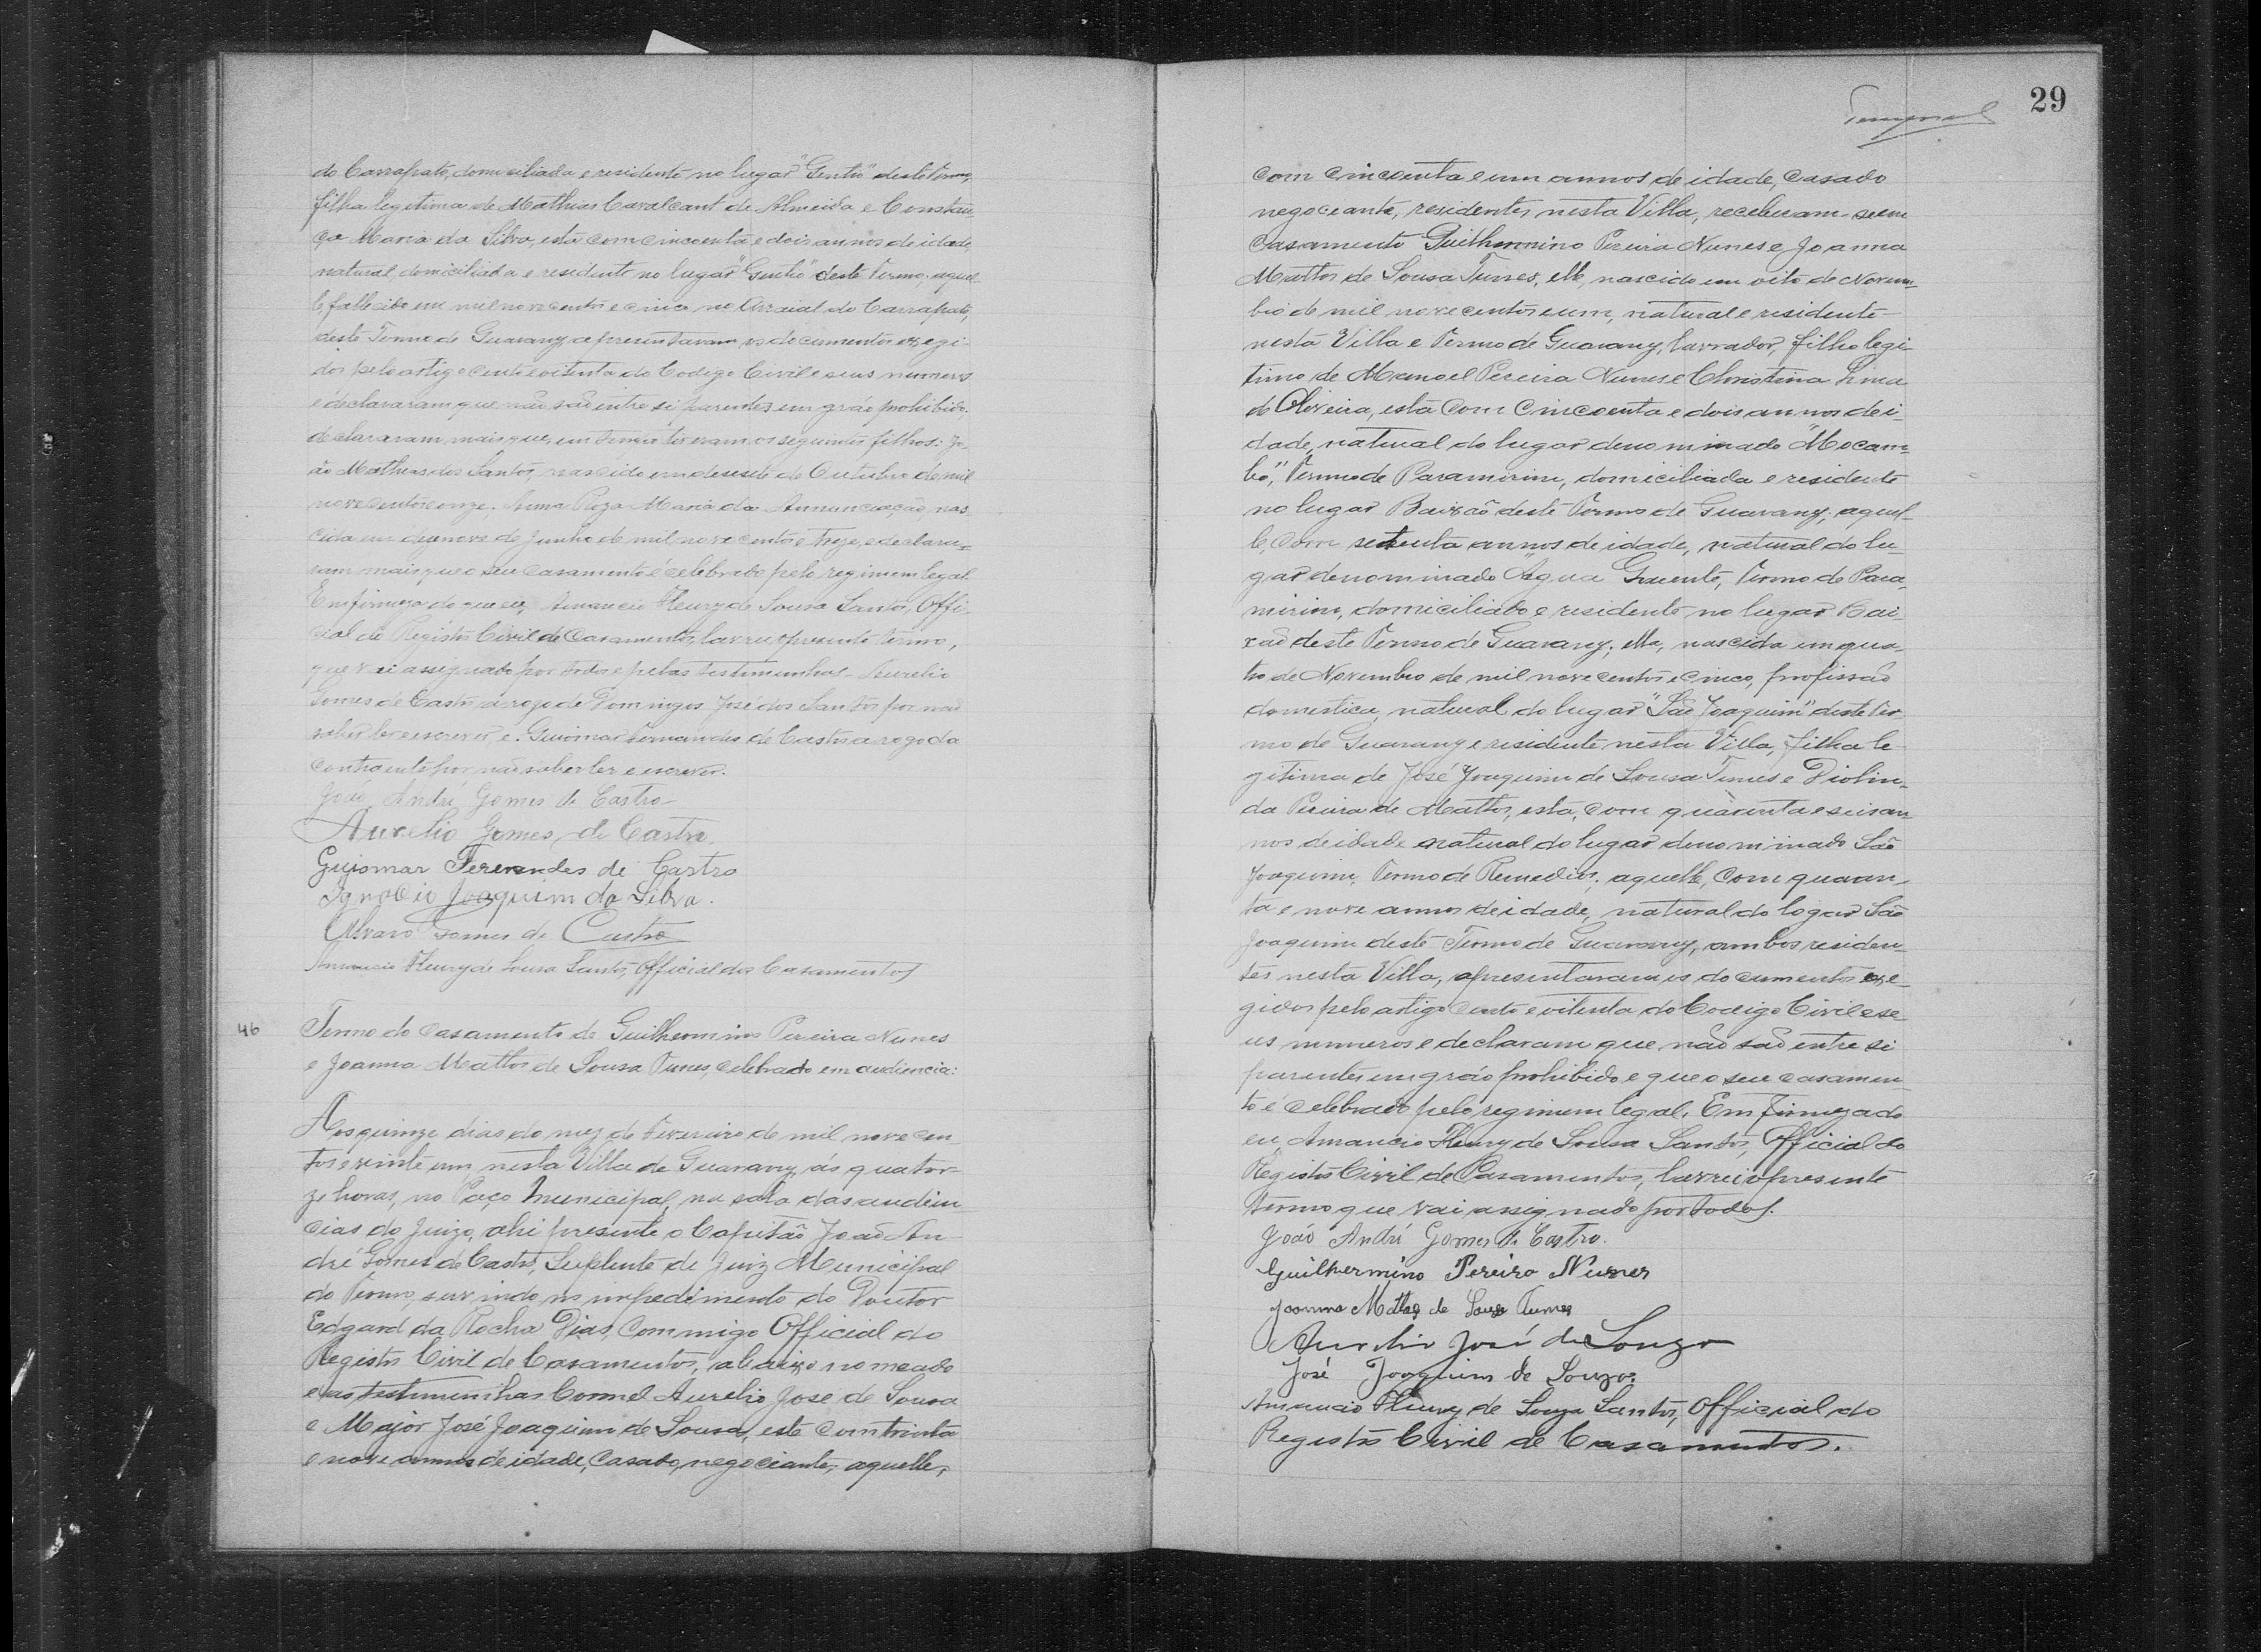 do Carrapato, domiciliada e residente no lugar "Gentio" deste termo,
filha legitima de Mathias Cavalcant de Almeida e Constan
ça Maria da Silva, esta com cincoenta e dois annos de idade
natural domiciliada e residente no lugar "Gentio" deste Termo; aquel
le fallecido em mil novecentos e cinco no Arraial do Carrapato,
deste Termo de Guarany, apresentaram os documentos exegi-
dos pelo artigo cento e oitenta do Codigo Civil e seus numeros
e declararam que não são entre si parentes em gráo prohibido.
declararam mais que, em tiveram os seguintes filhos: Jo-
ão Mathias dos Santos, nascido em desesete de Outubro de mil
novecentos e onze; Anna Roza Maria da Annunciação, nas-
cida em dezenove de Junho de mil novecentos e treze, e declara-
ram mais que o seu casamento é celebrado pelo regimem legal.
Em firmeza do que eu, Amancio Fleury de Sousa Santos, Offi-
cial do Registro Civil de Casamentos, lavrei o presente termo,
que vai assignado por todos e pelas testimunhas Aurelio
Gomes de Castro a rogo de Domingos José dos Santos por não
saber ler e escrever, e Guiomar Fernandes de Castro a rogo da
contraente por não saber ler e escrever.
João André Gomes de Castro
Aurelio Gomes de Castro
Guiomar Ferenandes de Castro
Ignacio Joaquim da Silva.
Alvaro Gomes de Castro
Amancio Fleury de Sousa Santos, Official dos Casamentos
46 Termo do casamento de Guilhermino Pereira Nunes
e Joanna Mattos de Sousa Tunes, celebrado em audiencia:
Aos quinze dias do mez de Fevereiro de mil novecen
tos e vinte um, nesta Villa de Guarany, ás quator-
ze horas, no Paço Municipal, na sala das audien
cias do Juizo, ahi presente o Capitão João An-
dré Gomes de Castro, Suplente de Juiz Municipal
do Termo, servindo no impedimento do Doutor
Edgard da Rocha Dias, commigo Official do
Registro Civil de Casamentos, abaixo nomeado
e as testimunhas Coronel Aurelio Jose de Sousa
e Major José Joaquim de Sousa, este com trinta
e nove annos de idade, casado, negociante, aquelle,
29
com cincoenta e um annos de idade, casado
negociante, residentes nesta Villa, receberam-se em
casamento Guilhermino Pereira Nunes e Joanna
Mattos de Sousa Tunes, elle, nascido em oito de Novem-
bro de mil novecentos e um, natural e residente
nesta Villa e Termo de Guarany, lavrador, filho legi-
timo de Manoel Pereira Nunes e Christina Lima
de Oliveira, esta com cincoenta e dois annos de i-
dade, natural do lugar denominado "Mocam-
bo", Termo de Paramirim, domiciliada e residente
no lugar Baixão deste Termo de Guarany; aquel-
le, com setenta annos de idade, natural do lu-
gar denominado "Agua Quente, Termo de Para-
mirim, domiciliado e residente no lugar Bai-
xão deste Termo de Guarany; ella, nascida em qua-
tro de Novembro de mil novecentos e cinco, profissão
domestica, natural do lugar "São Joaquim" deste Ter
mo de Guarany e residente nesta Villa, filha le-
gitima de José Joaquim de Sousa Tunes e Diolin-
da Pereira de Mattos, esta, com quarenta e seis an
nos de idade natural do lugar denominado São
Joaquim, Termo de Remedios; aquelle, com quaren-
ta e nove annos de idade, natural do logar São
Joaquim deste Termo de Guarany, ambos residen-
tes nesta Villa, apresentaram os documentos exe-
gidos pelo artigo cento e oitenta do Codigo Civil e se
us numeros e declaram que não são entre si
parentes em gráo prohibido e que o seu casamen
to é celebrado pelo regimem legal. Em firmeza do
eu, Amancio Fleury de Sousa Santos, Official do
Registro Civil de Casamentos, lavrei o presente
termo que vai assignado por todos.
João André Gomes de Castro.
Guilhermino Pereira Nunes
Joanna Mattos de Souza Tunes
Aurelio José de Souza
José Joaquim de Souza.
Amancio Fleury de Souza Santos, Official do
Registro Civil de Casamentos.